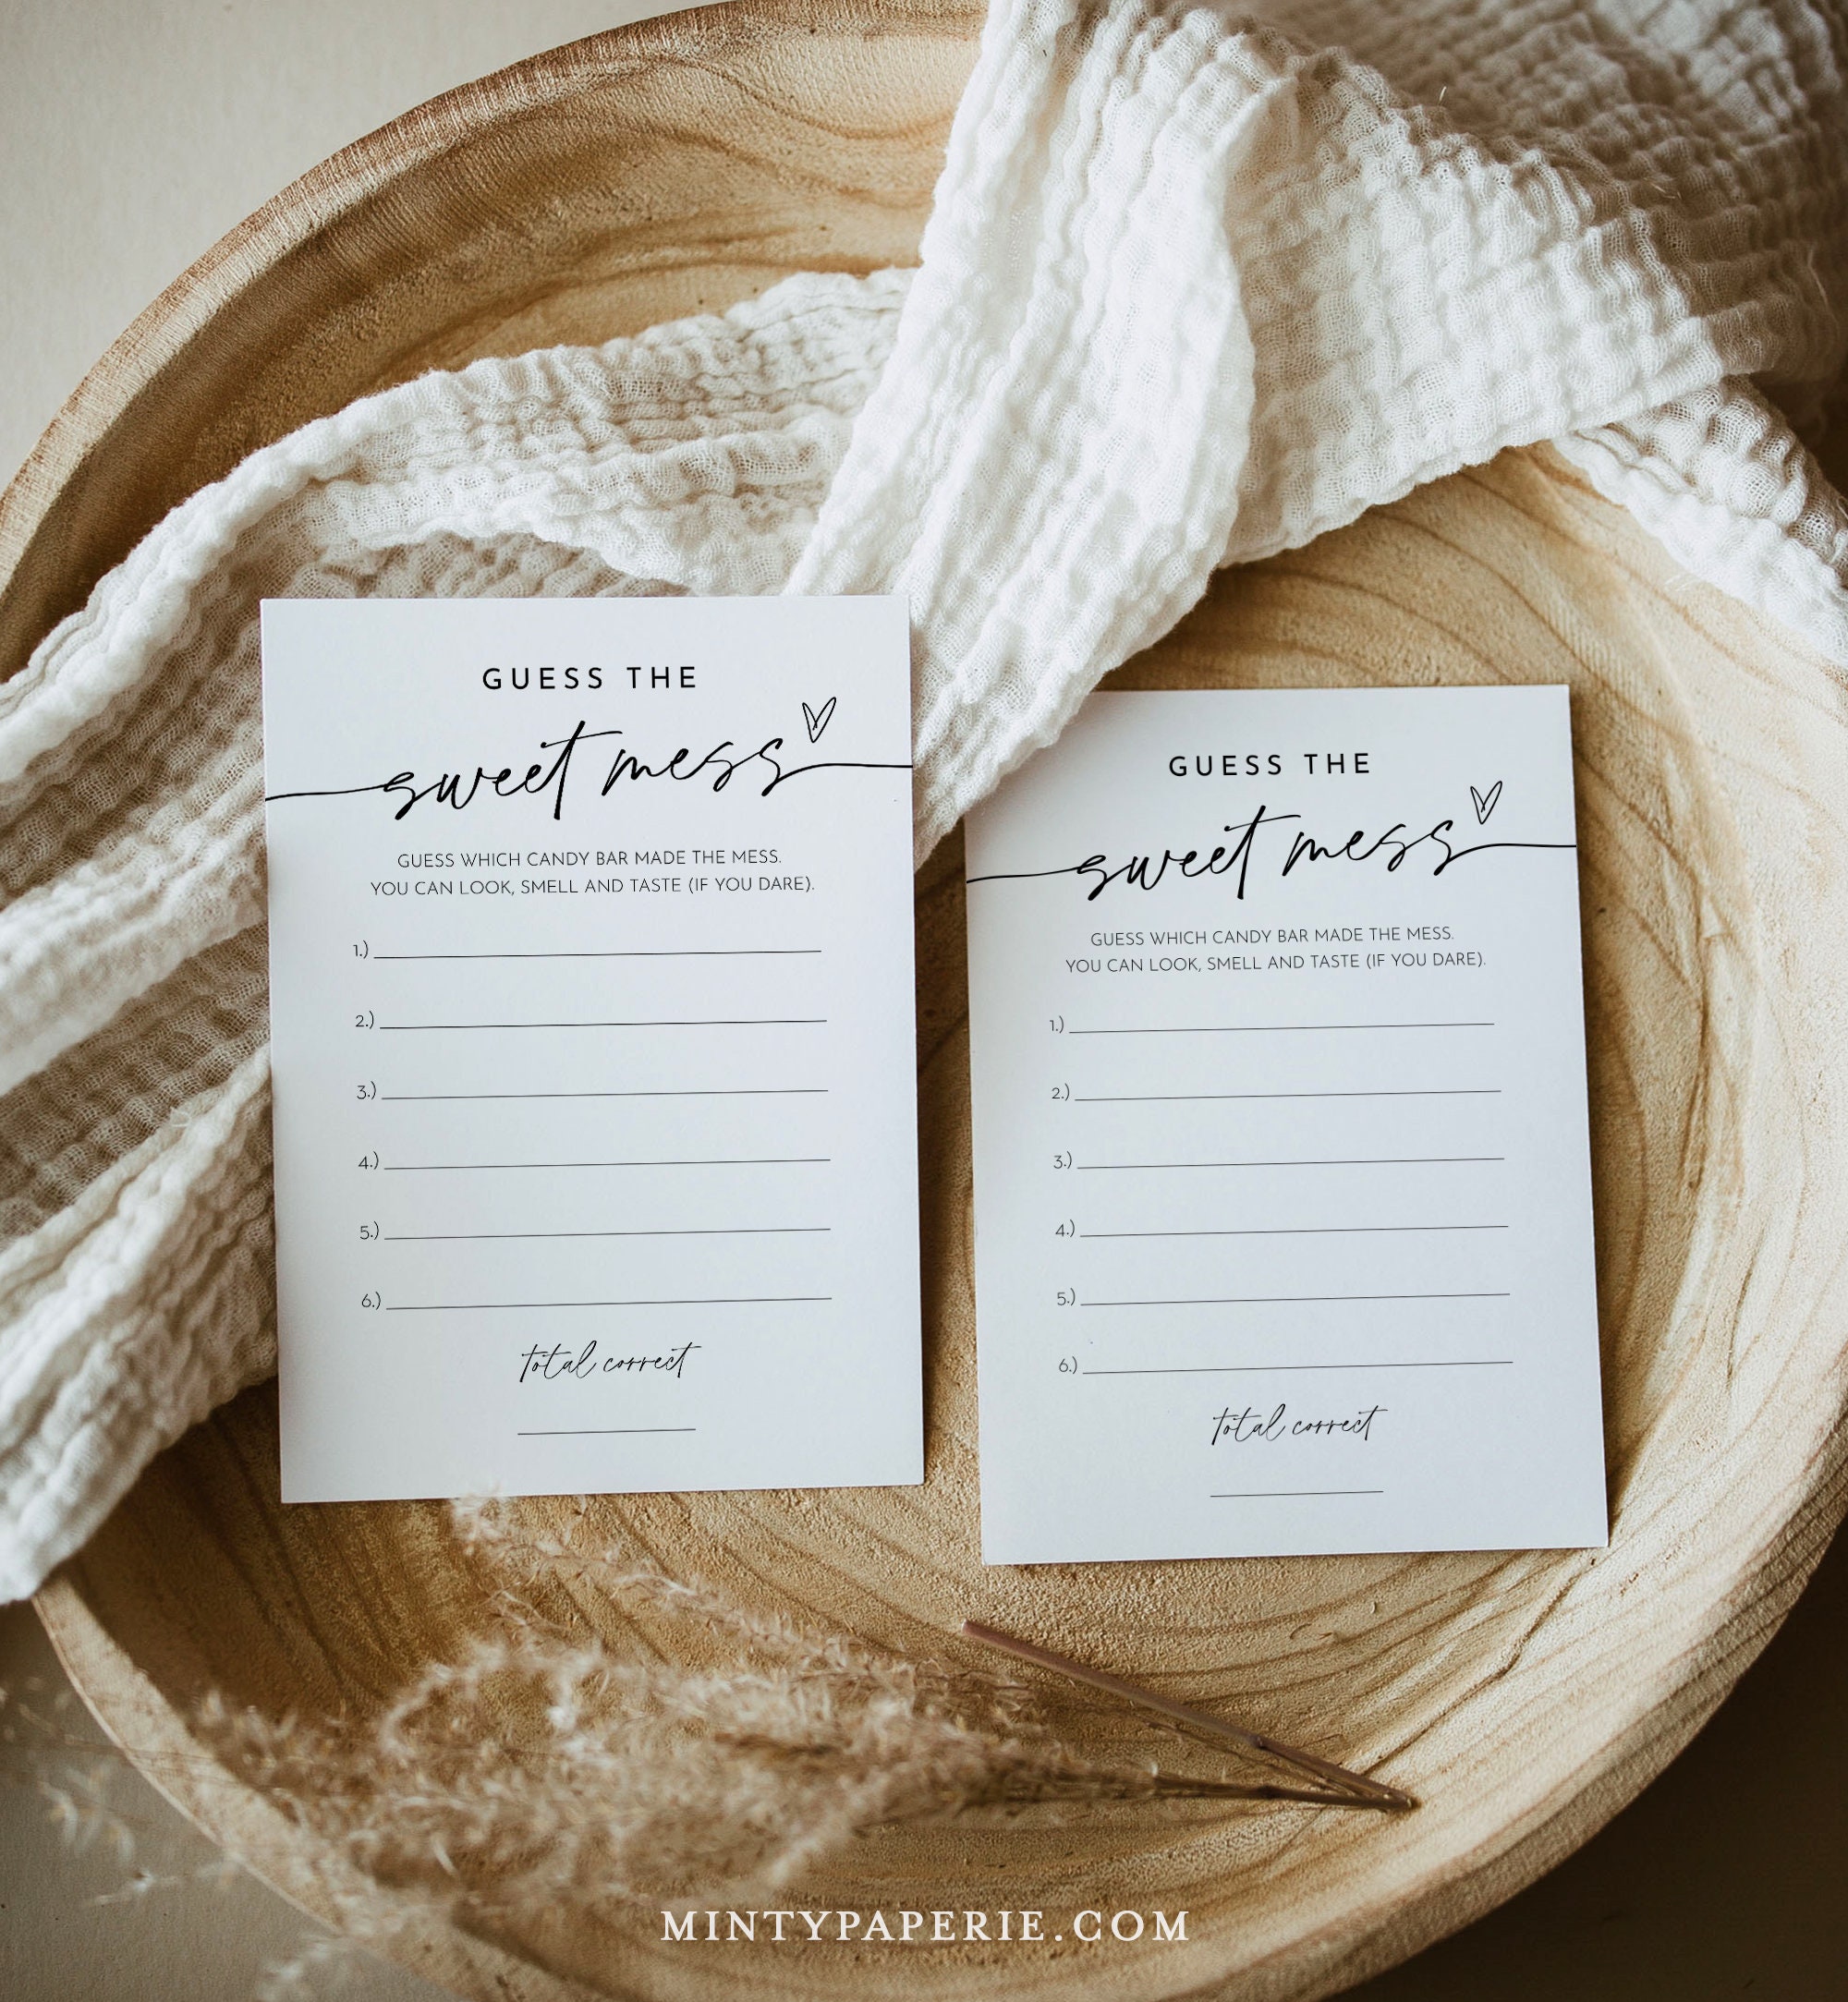 GUESS THE
sweet mess
GUESS WHICH CANDY BAR MADE THE MESS.
YOU CAN LOOK, SMELL AND TASTE (IF YOU DARE).
1.)
2.)
3.)
4.)
5.)
6.)
total correct
GUESS THE
sweet mess
GUESS WHICH CANDY BAR MADE THE MESS.
YOU CAN LOOK, SMELL AND TASTE (IF YOU DARE).
1.)
2.)
3.)
4.)
5.)
6.)
total correct
MINTYPAPERIE.COM